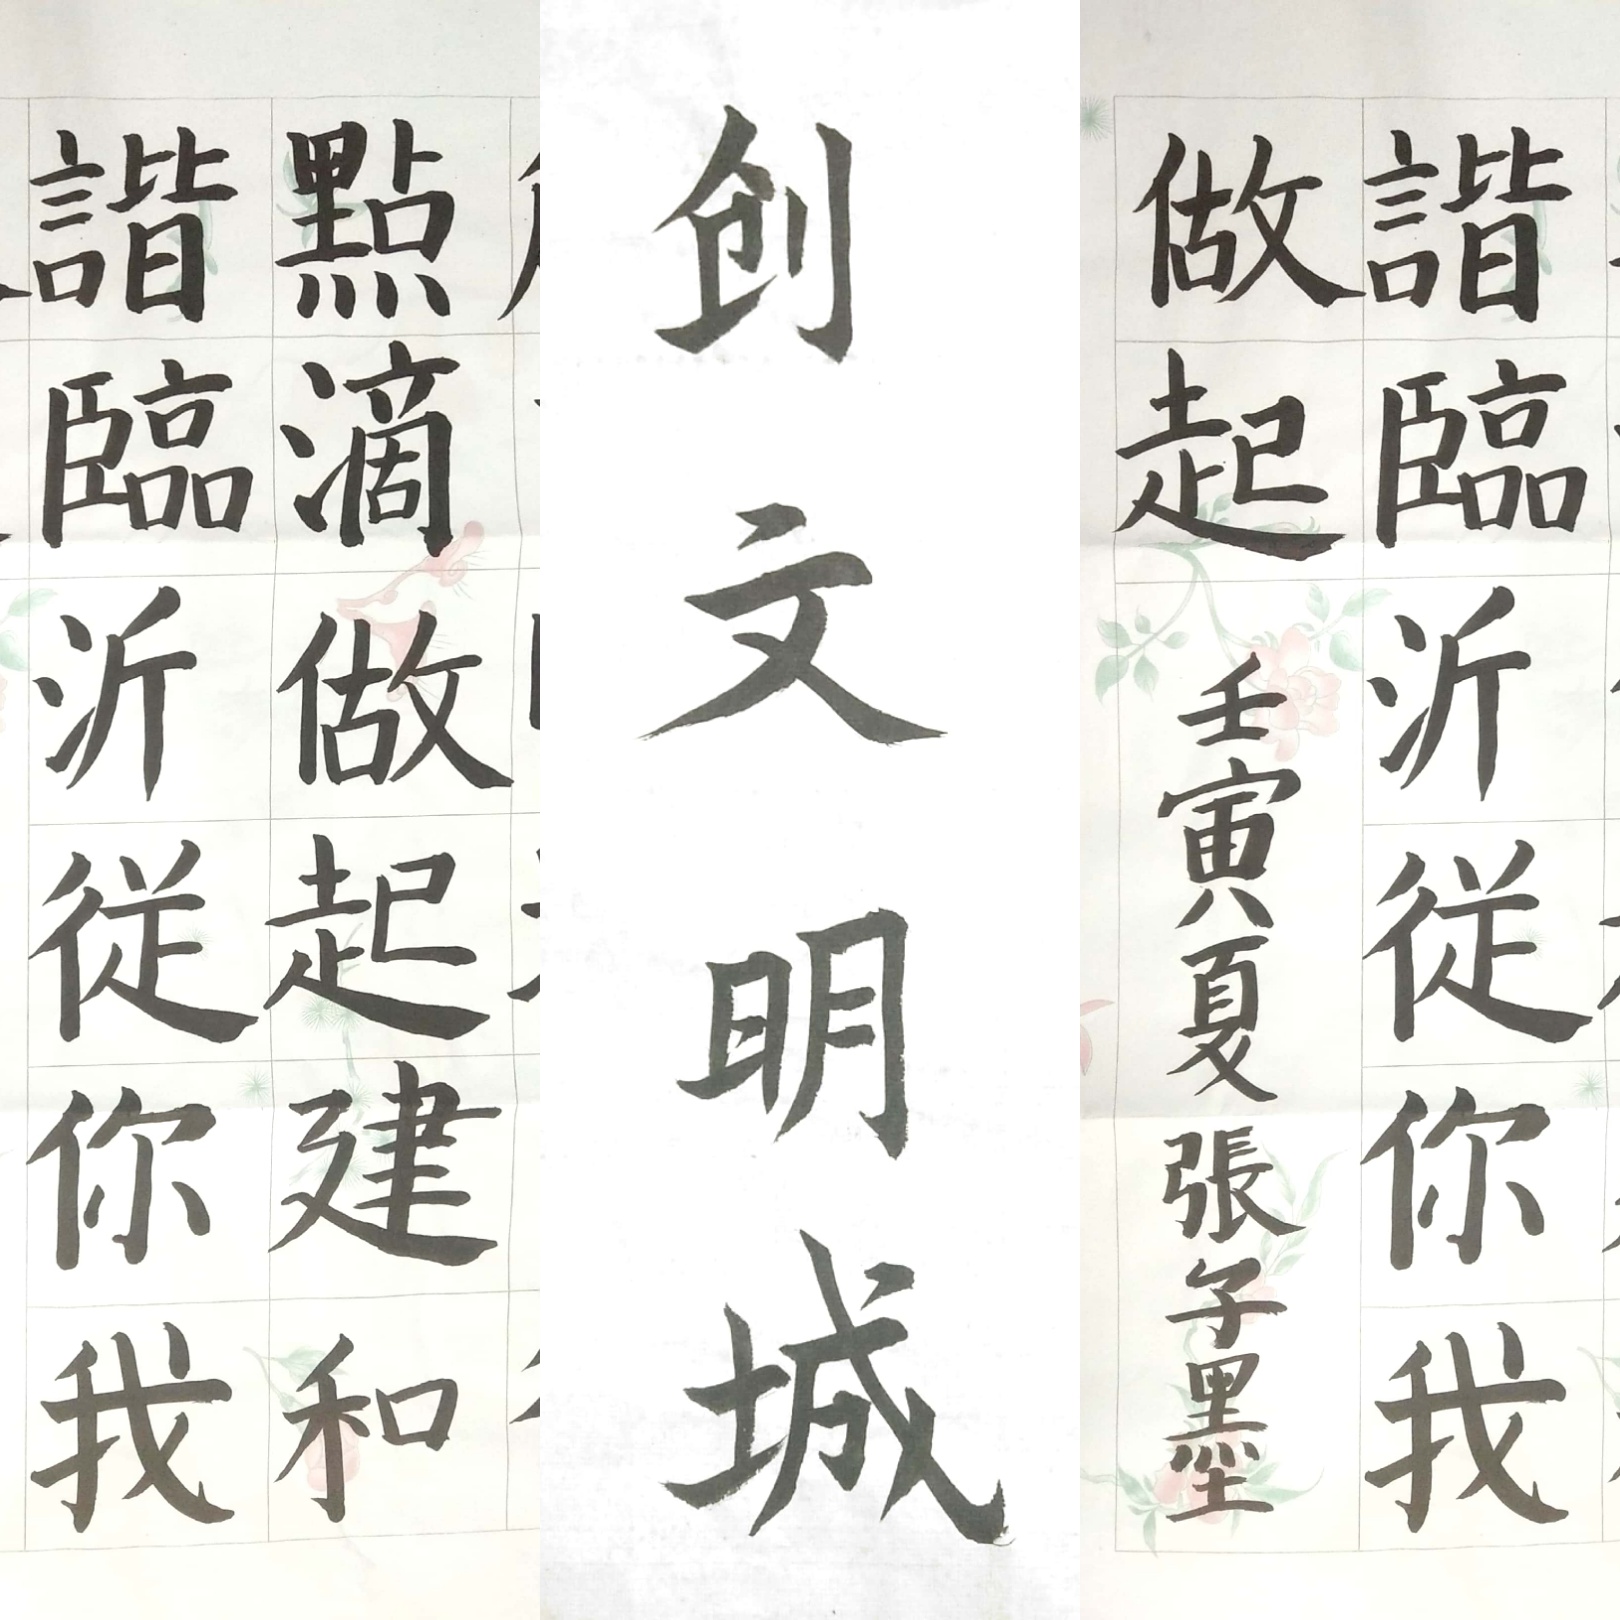 點滴做起建和
諧臨沂従你我
创文明城
諧臨沂従你我
做起
壬寅夏 張子墨